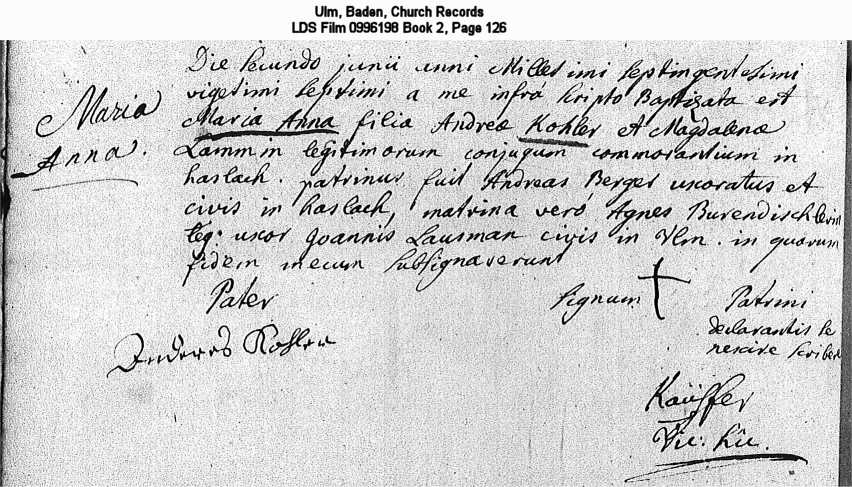 Ulm, Baden, Church Records
LDS Film 0996198 Book 2, Page 126
Maria
Anna.
Die secundo junii anni Millesimi septingentesimi
vigesimi septimi a me infra scripto Baptizata est
Maria Anna filia Andreæ Kohler et Magdalenæ
Lammin legitimorum conjugum commorantium in
haslach. patrinus fuit Andreas Berger uxoratus et
civis in haslach, matrina vero Agnes
leg: uxor Joannis Lausman civis in Ulm. in quorum
fidem mecum subsignaverunt
Pater signum Patrini
declarantis se
nescire scribere
Anderes Kohler
Vic: